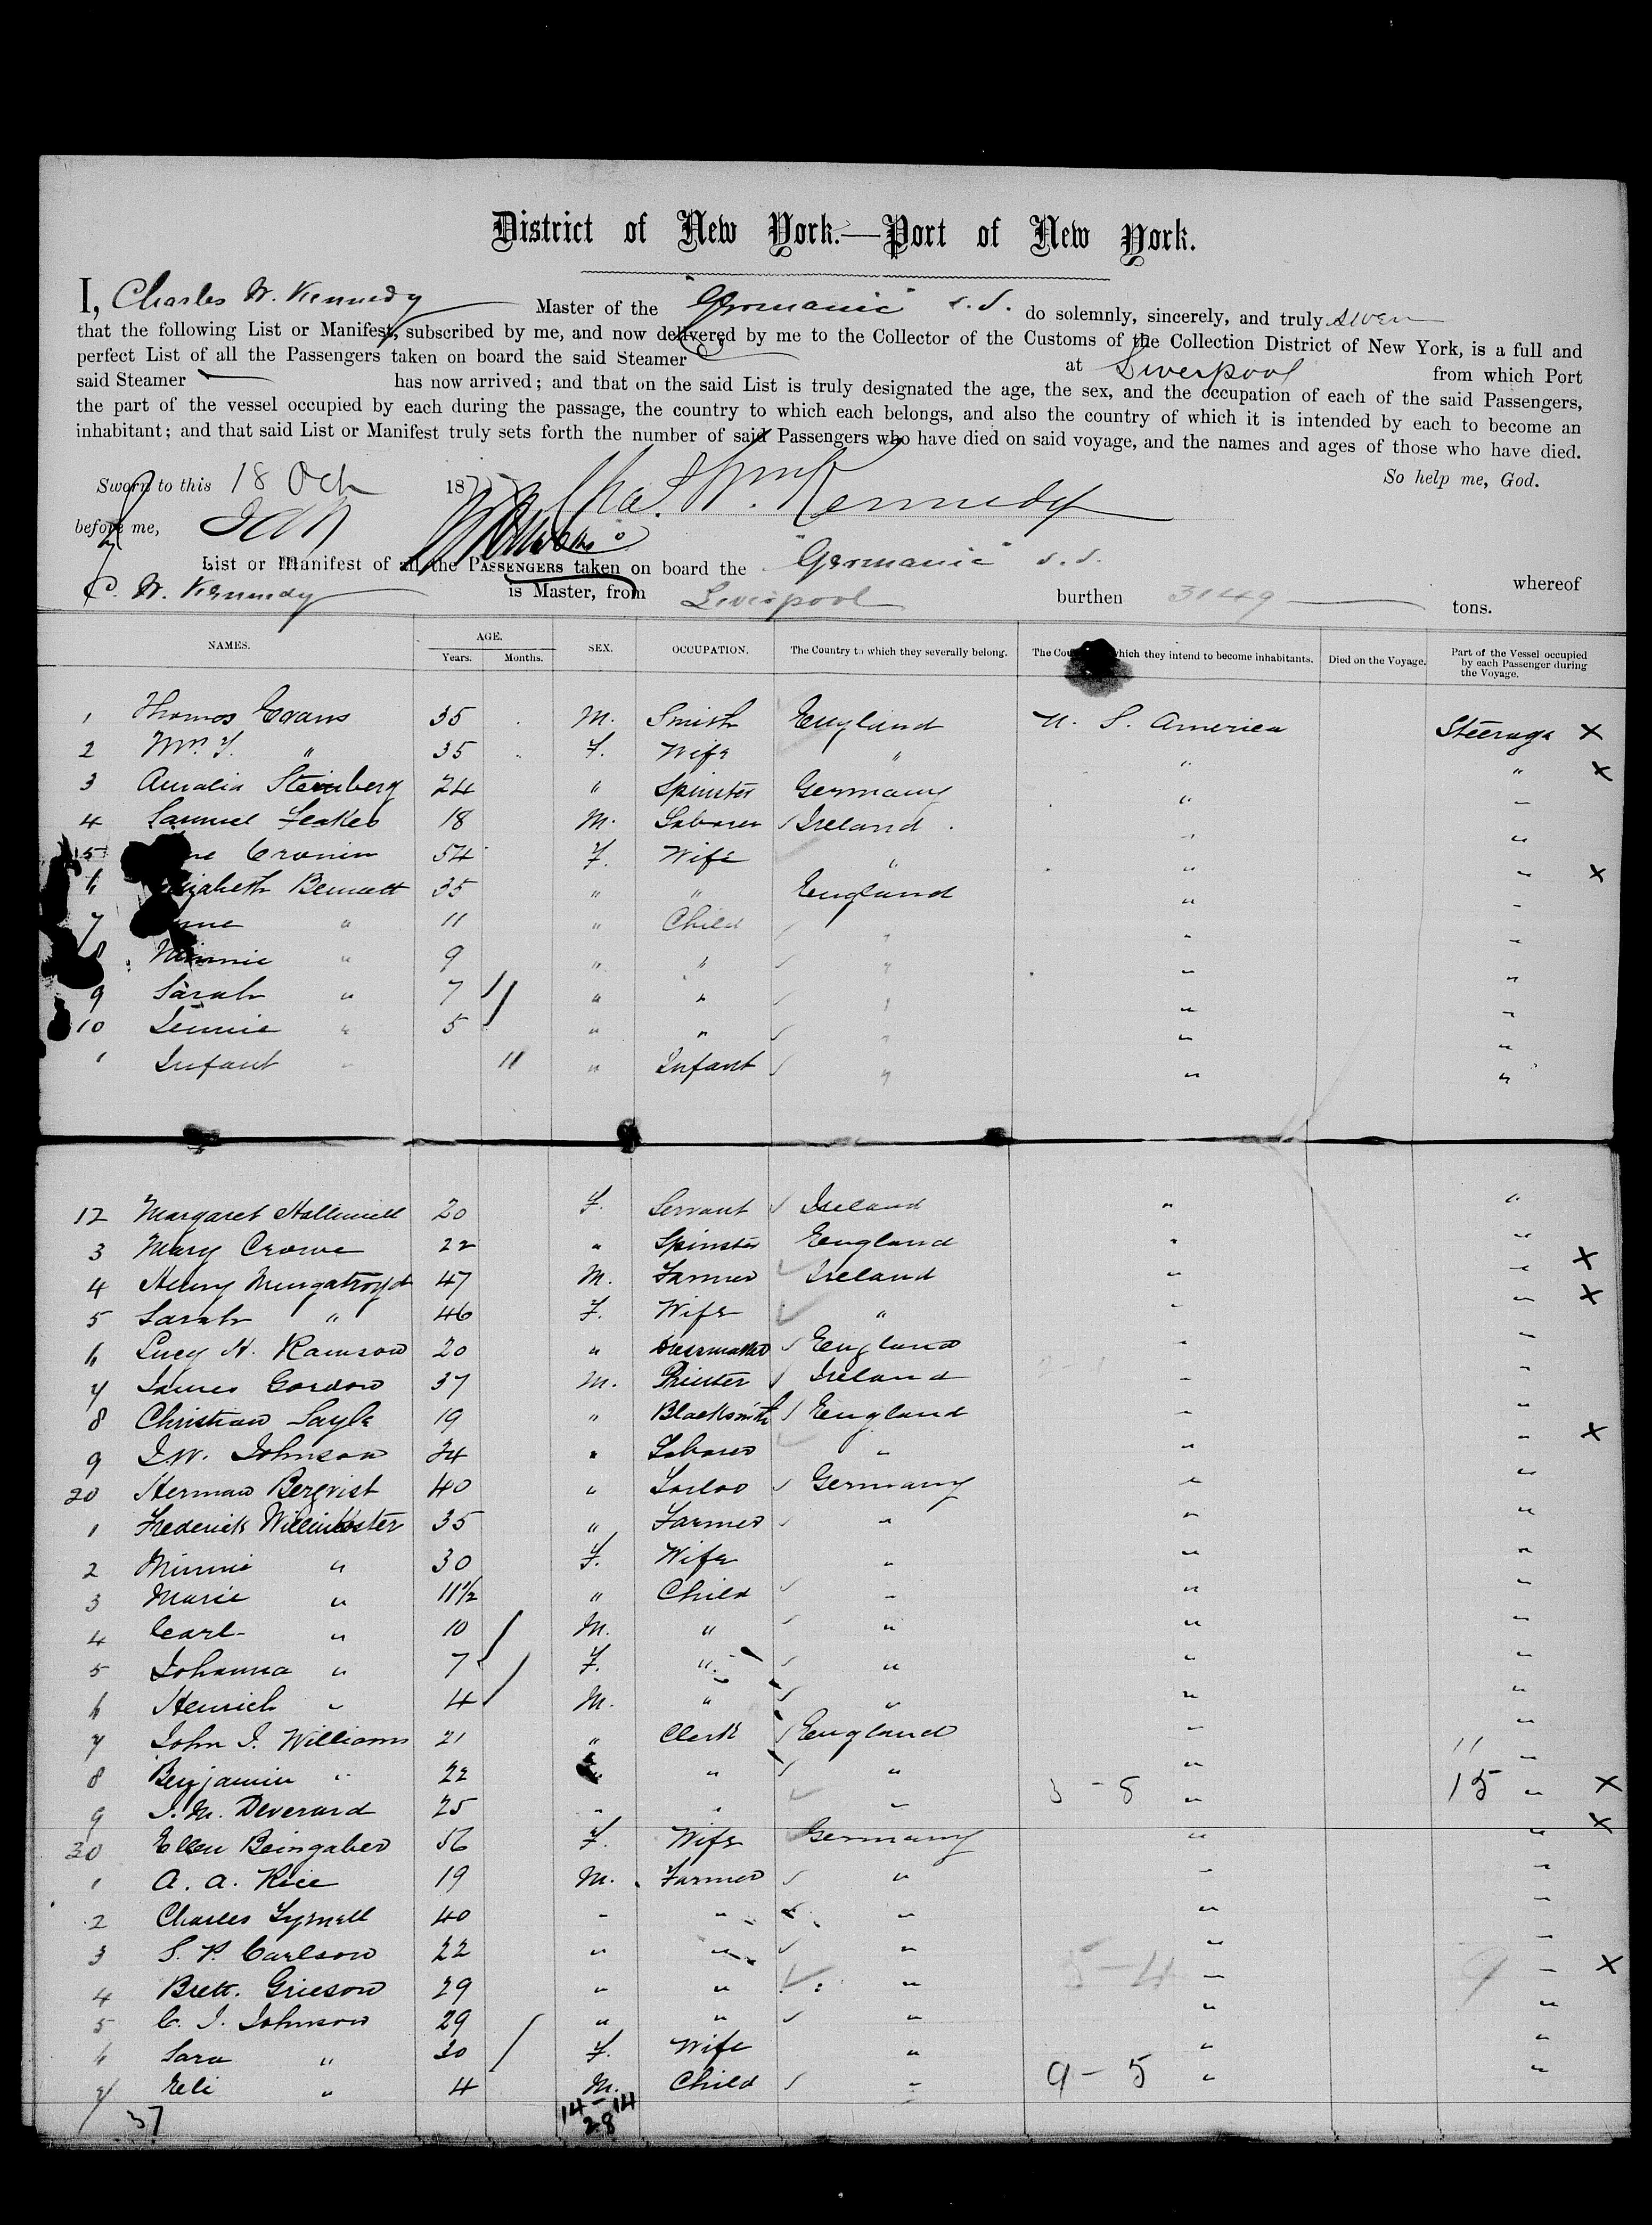 District of New York.—Port of New York.
I, Charles W. Kennedy Master of the "Germanic" s.s. do solemnly, sincerely, and truly swear
that the following List or Manifest, subscribed by me, and now delivered by me to the Collector of the Customs of the Collection District of New York, is a full and
perfect List of all the Passengers taken on board the said Steamer at Liverpool from which Port
said Steamer has now arrived; and that on the said List is truly designated the age, the sex, and the occupation of each of the said Passengers,
the part of the vessel occupied by each during the passage, the country to which each belongs, and also the country of which it is intended by each to become an
inhabitant; and that said List or Manifest truly sets forth the number of said Passengers who have died on said voyage, and the names and ages of those who have died.
So help me, God.
Sworn to this 18 Oct 187 Chas. Wm. Kennedy
before me,
List or Manifest of all the PASSENGERS taken on board the "Germanic" s.s. whereof
C. W. Kennedy is Master, from Liverpool burthen 3149 tons.
NAMES. AGE. Years. Months. SEX. OCCUPATION. The Country to which they severally belong. The which they intend to become inhabitants. Died on the Voyage. Part of the Vessel occupied by each Passenger during the Voyage.
1 Thomas Evans 35 M. Smith England U. S. America Steerage X
2 Mrs. T. " 35 F. Wife " " " X
3 Amalia Steinberg 24 " Spinster Germany " "
4 Samuel Leakes 18 M. Laborer Ireland " "
5 Cronin 54 F. Wife " " " X
6 Elizabeth Bennett 35 " " England " "
7 " 11 " Child " " "
8 Minnie " 9 " " " " "
9 Sarah " 7 " " " " "
10 Jennie " 5 " " " " "
1 Infant " 11 " Infant " " "
12 Margaret Halliwell 20 F. Servant Ireland " "
3 Mary Crowe 22 " Spinster England " " X
4 Henry Murgatroyd 47 M. Farmer Ireland " " X
5 Sarah " 46 F. Wife " " "
6 Lucy H. Ramson 20 " Dressmaker England " "
7 James Gordon 37 M. Printer Ireland " "
8 Christian Sayle 19 " Blacksmith England " "
9 J.W. Johnson 24 " Laborer " " " X
20 Herman Berqvist 40 " Germany " "
1 Frederick 35 " Farmer " " "
2 Minnie " 30 F. Wife " " "
3 Marie " 11½ " Child " " "
4 Carl " 10 M. " " " "
5 Johanna " 7 F. " " " "
6 Henrich " 4 M. " " " "
7 John J. Williams 21 " Clerk England " "
8 Benjamin " 22 " " " " " 11
9 J. M. Deverard 25 " " " 3 - 8 " 15 " X
30 Ellen Beingaber 56 F. Wife Germany " " X
1 A. A. Rice 19 M. Farmer " " "
2 Charles 40 " " " " "
3 S. P. Carlson 22 " " " " "
4 Brett. Grieson 29 " " " 5-4 " 9 " X
5 C. J. Johnson 29 " " " " "
6 Sara " 30 F. Wife " " "
7 Eli " 4 M. Child " 9 - 5 " "
37 14 - 14
28